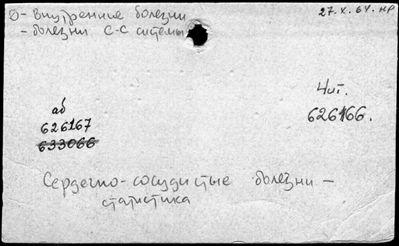 О - Внутренние болезни
27.X.64. нр
- болезни С-С системы
Чит.
626166.
аб
626167
633066
Сердечно-сосудистые болезни -
статистика